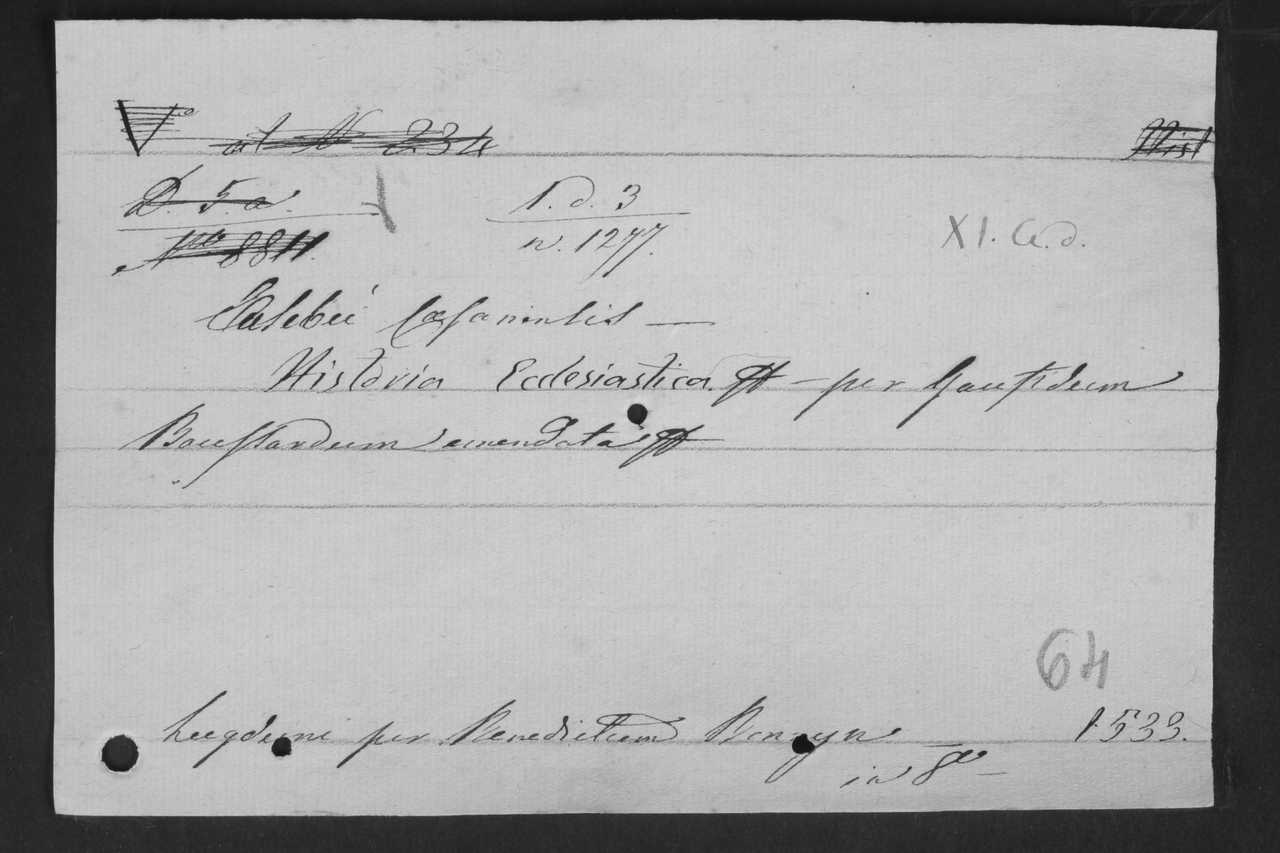 V° at N 234 Hist
D. 5. a. I. d. 3 XI. a. d.
No 8811. n. 1277.
Eusebii Cæsariensis —
Historia Ecclesiastica — per Gaufridum
Boussardum emendata
64
Lugduni per Benedictum Bonnyn 1533.
in 8°